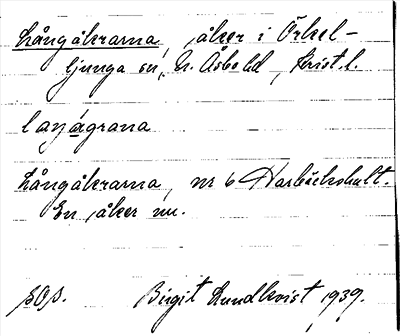 Långåkrarna, åker i Örkel-
ljunga sn, N. Åsbo hd, Krist. l.
Långåkrarna, nr 6 Harbäckshult.
En åker nu.
Birgit Lundkvist, 1939.